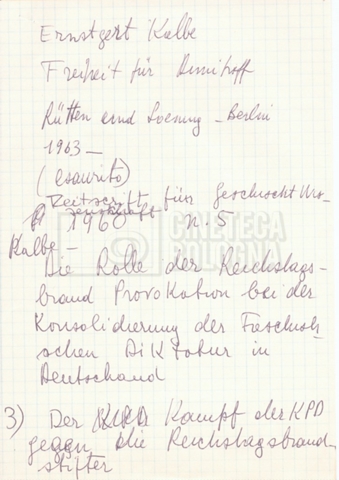 Ernstgert Kalbe
Freiheit für Dimitroff
Rütten und Loening - Berlin
1963 -
(esaurito)
Zeitscrift für Geschicht Wis-
senschaft
1960 n. 5
CINETECA
BOLOGNA
Kalbe -
Die Rolle der Reichstags-
brand Provokation bei der
Konsolidierung der Faschisti
schen Diktatur in
Deutschand
3) Der Kampf der KPD
gegen die Reichstagsbrand
stifter